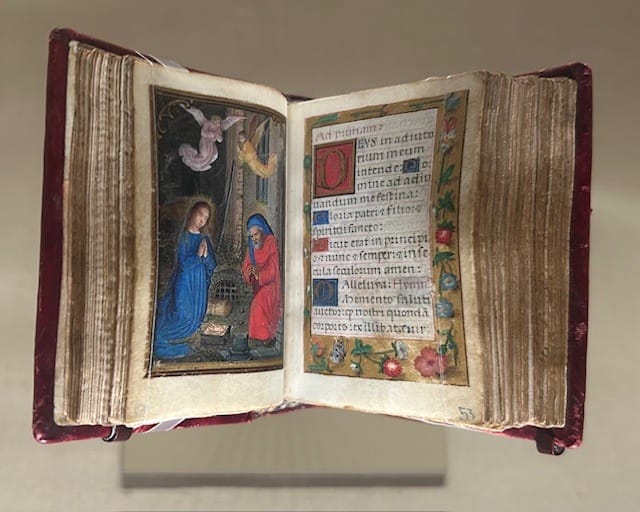 Ad primam
DEVS in adiuto
rium meum
intende: Do
mine ad adiu
uandum me festina:
Gloria patri & filio &
spiritui sancto:
Sicut erat in principi
o & nunc & semper: & in se
cula seculorum amen:
Alleluya: Hymn
Memento salutis
auctor: q nostri quonda
corporis: ex illibata uir
53